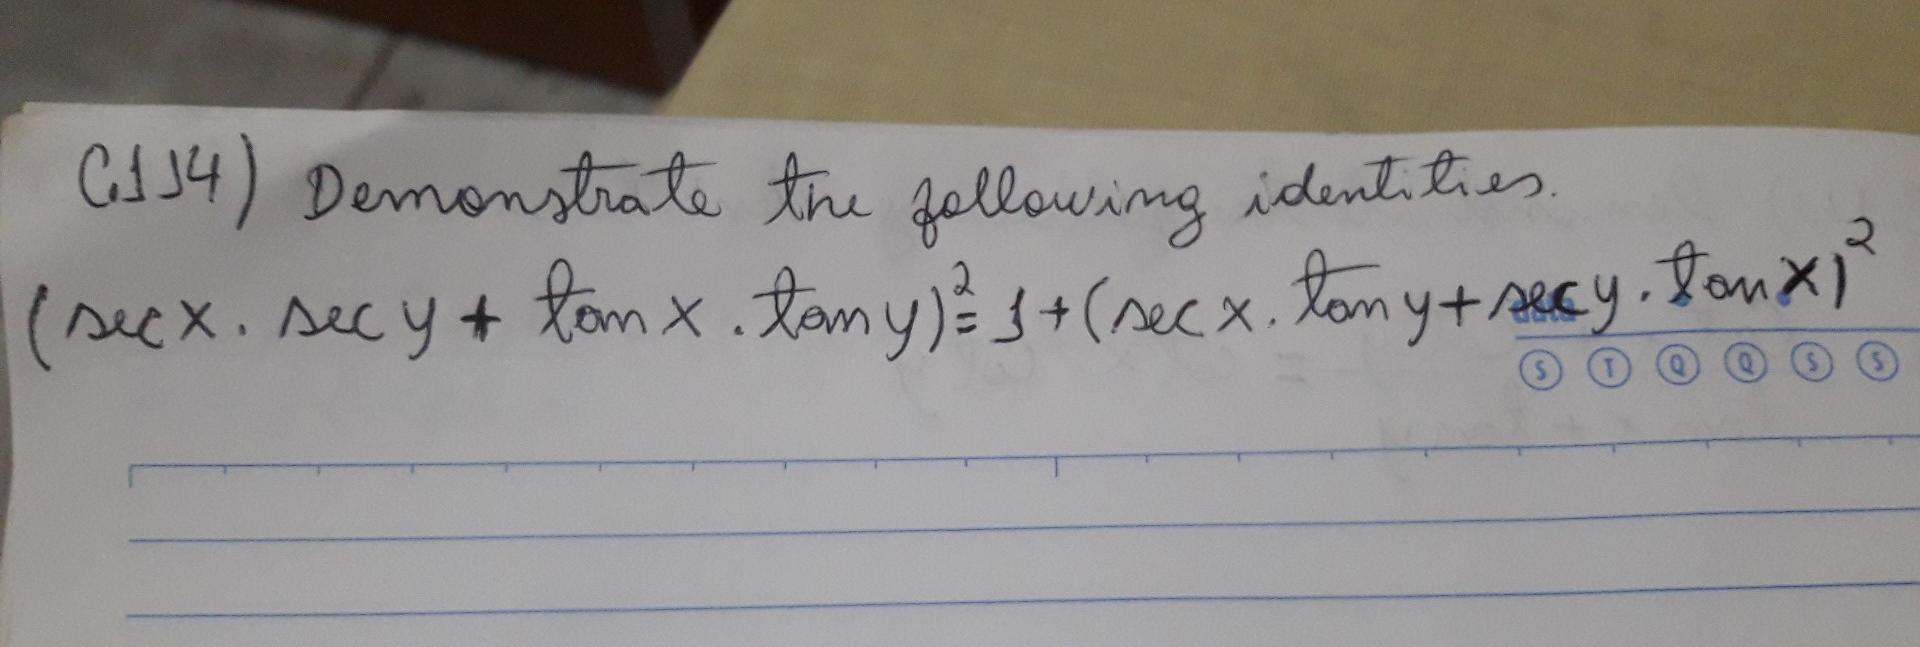 C.114) Demonstrate the following identities.
(sec x . sec y + tan x . tan y)² = 1 + (sec x . tan y + sec y . tan x)²
data
S T Q Q S S